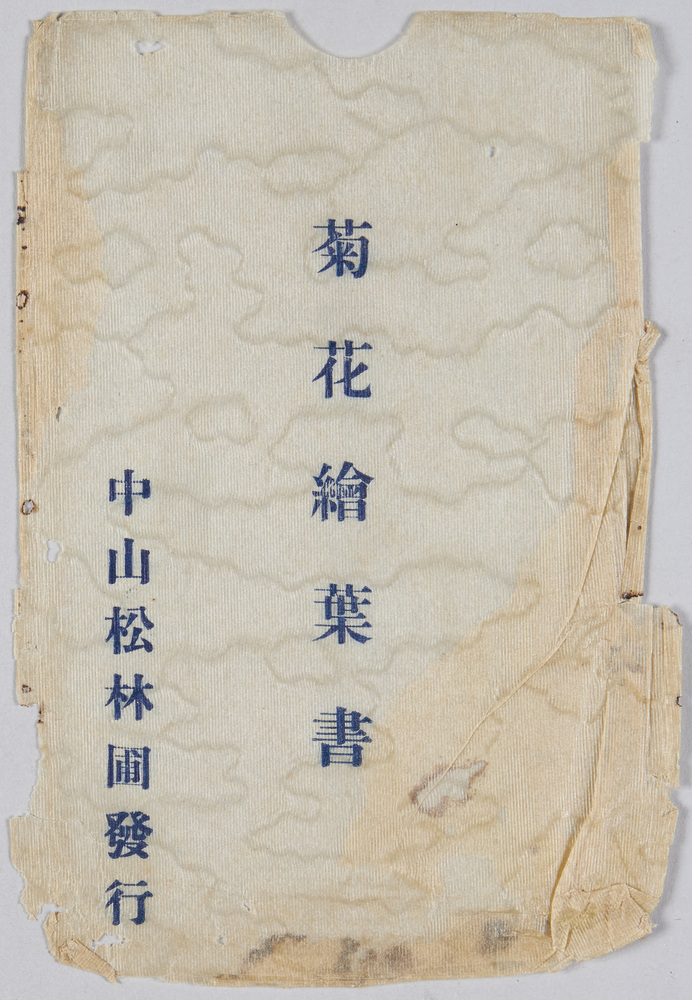 菊花繪葉書
中山松林圃發行